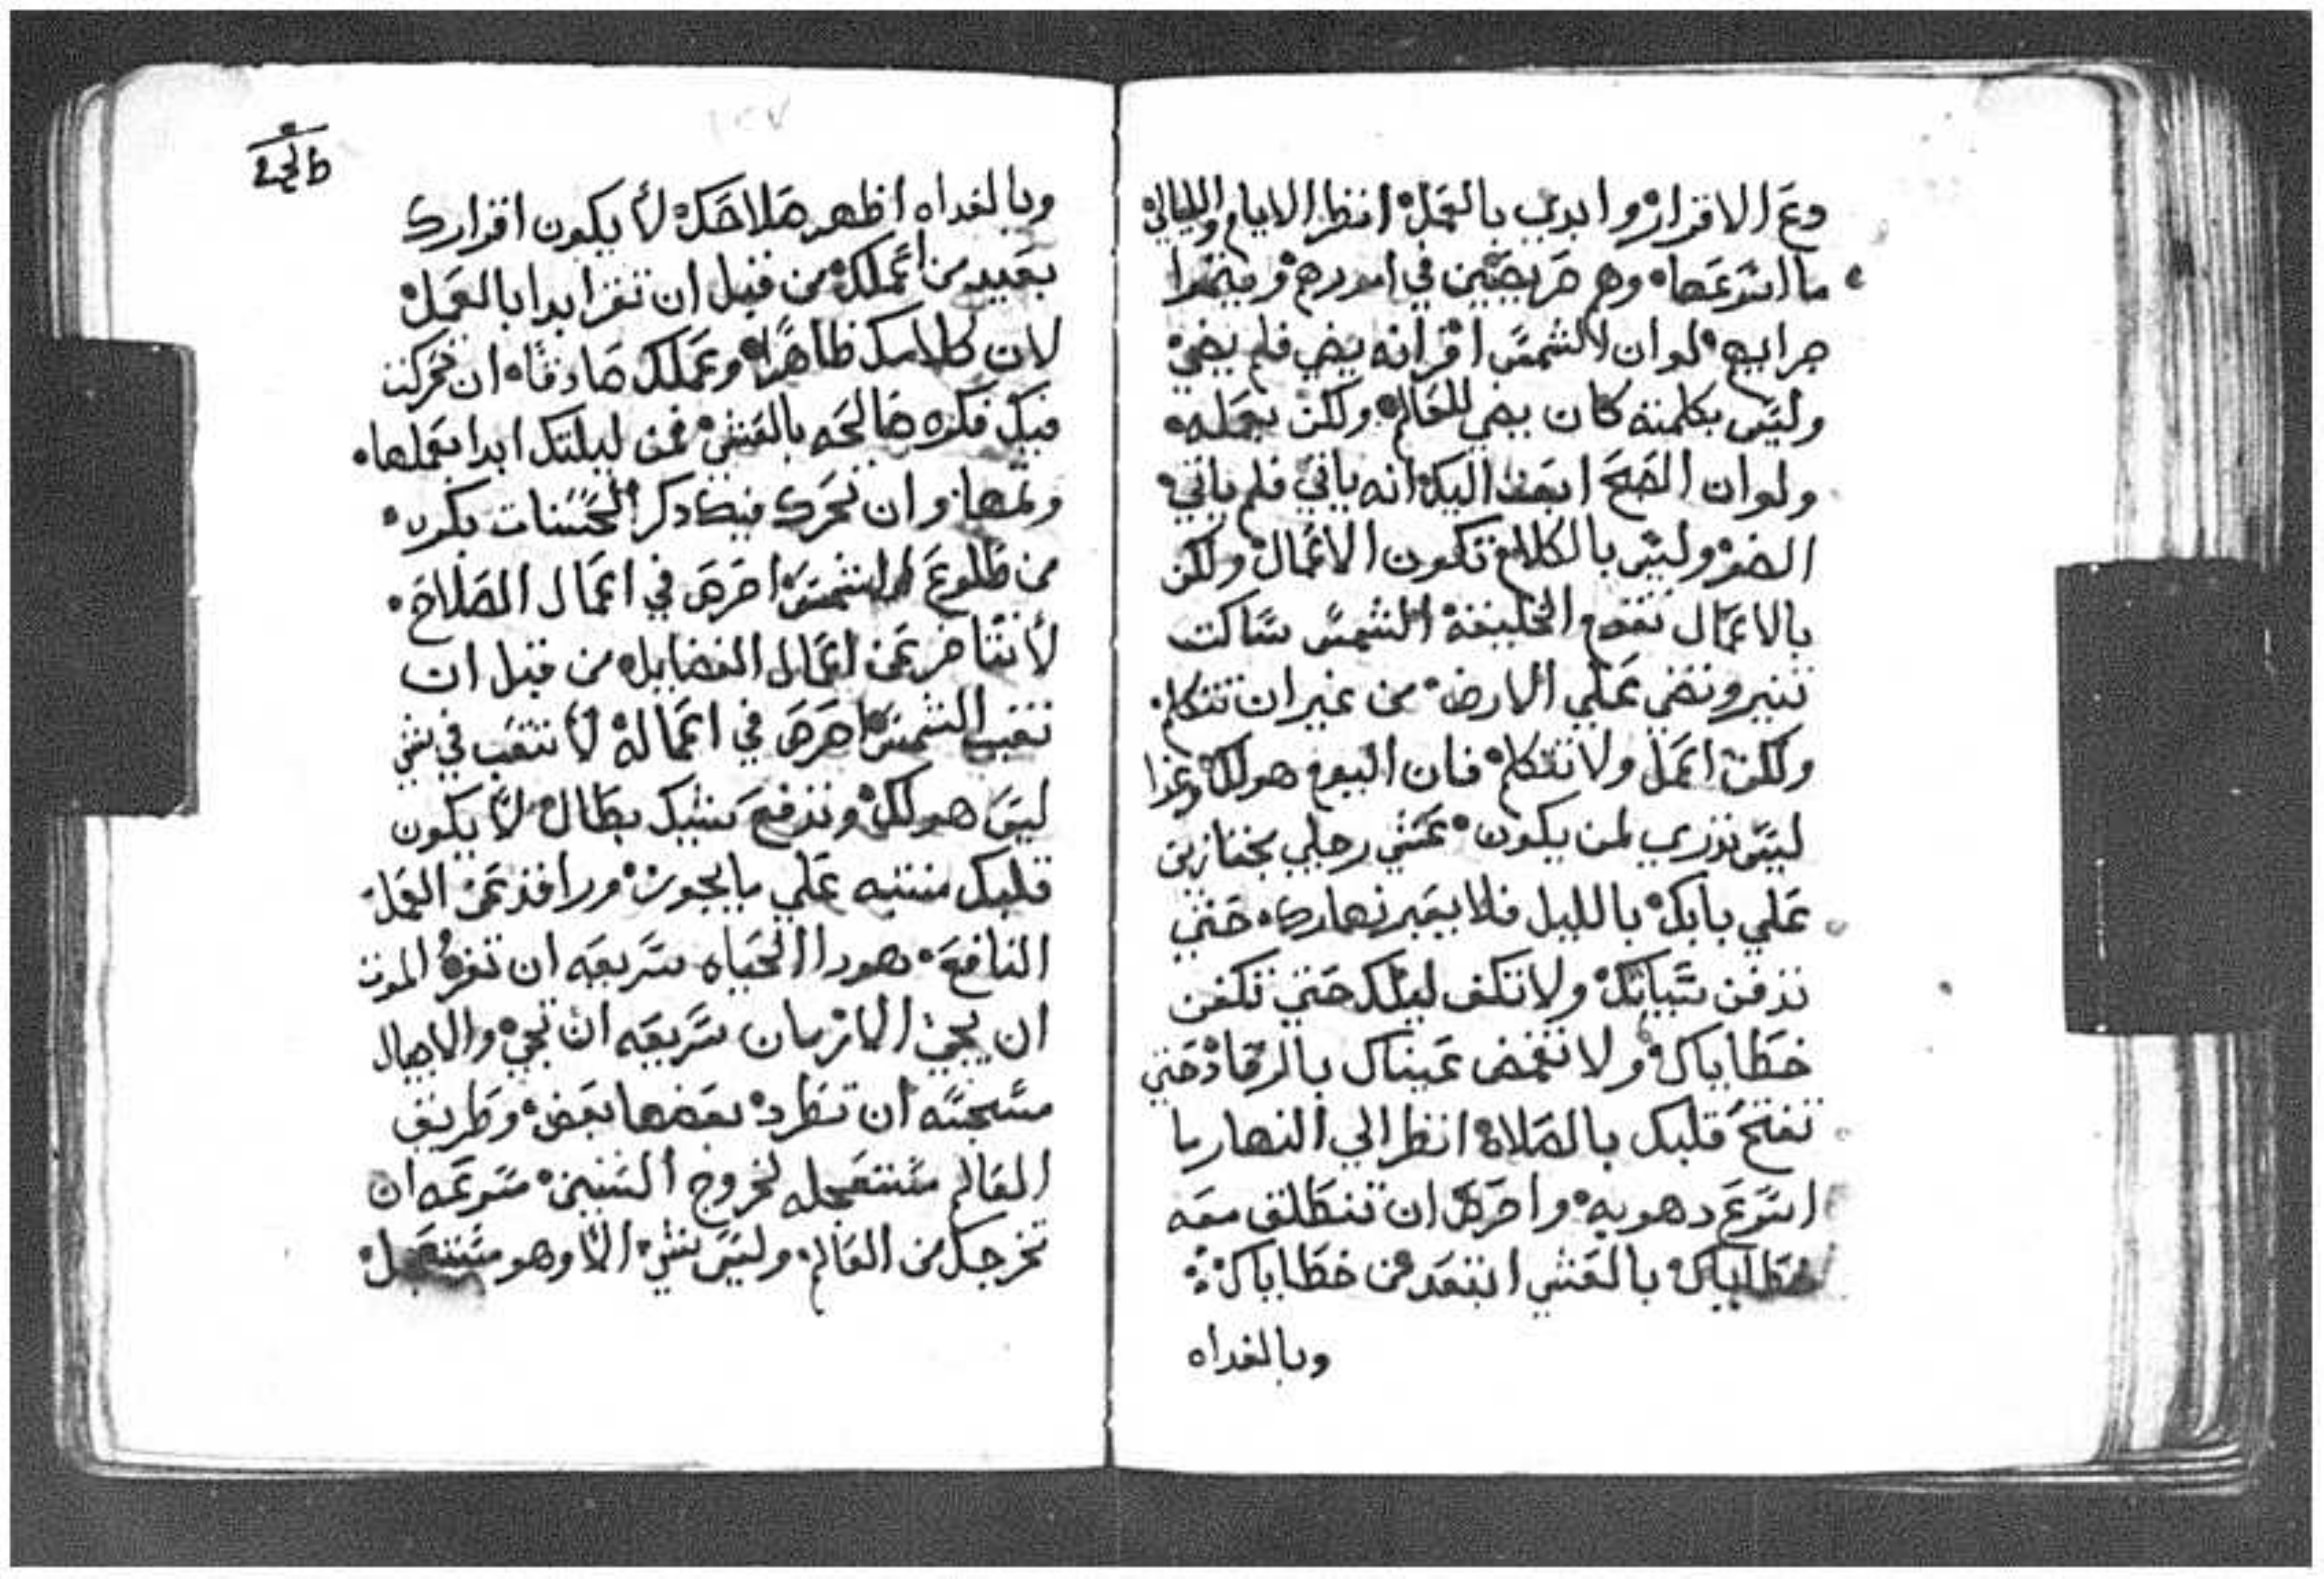 دع الاقرار وابدي بالعمل انظر الايام والليالي
ما اسرعها وهم حريصين في امورهم
لو ان الشمس اقر انه يضي فلم يضي
وليس بكلمته كان يضي للعالم ولكن بعمله
ولو ان الصح ابعث اليك انه ياتي فلم ياتي
وليس بالكلام تكون الاعمال ولكن
بالاعمال تقوم الخليقة الشمس ساكت
تنير وتضي علي الارض من غير ان تتكلم
ولكن اعمل ولا تتكلم فان اليوم هو لك وغدا
ليس تدري لمن يكون عشي رحلي
علي بابك بالليل فلا يعبر نهارك حتي
تدفن سياتك ولا تكف ليلك حتي تكفن
خطاياك ولا تغمض عيناك بالرقاد حتي
تفتح قلبك بالصلاه انظر الي النهار ما
اسرع دهوبه واحرص ان تنطلق معه
خطاياك بالعشي ابتعد من خطاياك
وبالغداه
وبالغداه اظهر صلاحك لأ يكون اقرارك
بعيد من اعملك من قبل ان تقر ابدا بالعمل
لان كلامك ظاهرا وعملك صادقا ان تحركت
فيك فكره صالحه بالعشي فمن ليلتك ابدا بعملها
وتمها وان تحرك فيك ذكر الحسنات بكره
من طلوع الشمس احرص في اعمال الصلاح
لأ تتاخر عن اعمال الفضايل من قبل ان
تغيب الشمس احرص في اعماله لأ تتعب في شي
ليس هو لك وتدفع بطال لأ يكون
قلبك منتبه علي ما يجوز وراقد عن العمل
النافع هودا الحياه سريعه ان تفر الموت
ان يجي الازمان سريعه ان تجي والاجيال
ان تطرد بعضها بعض وطريق
العالم مستعجله لخروج السنين مسرعه ان
تخرجك من العالم وليس شي الا وهو مستعجل